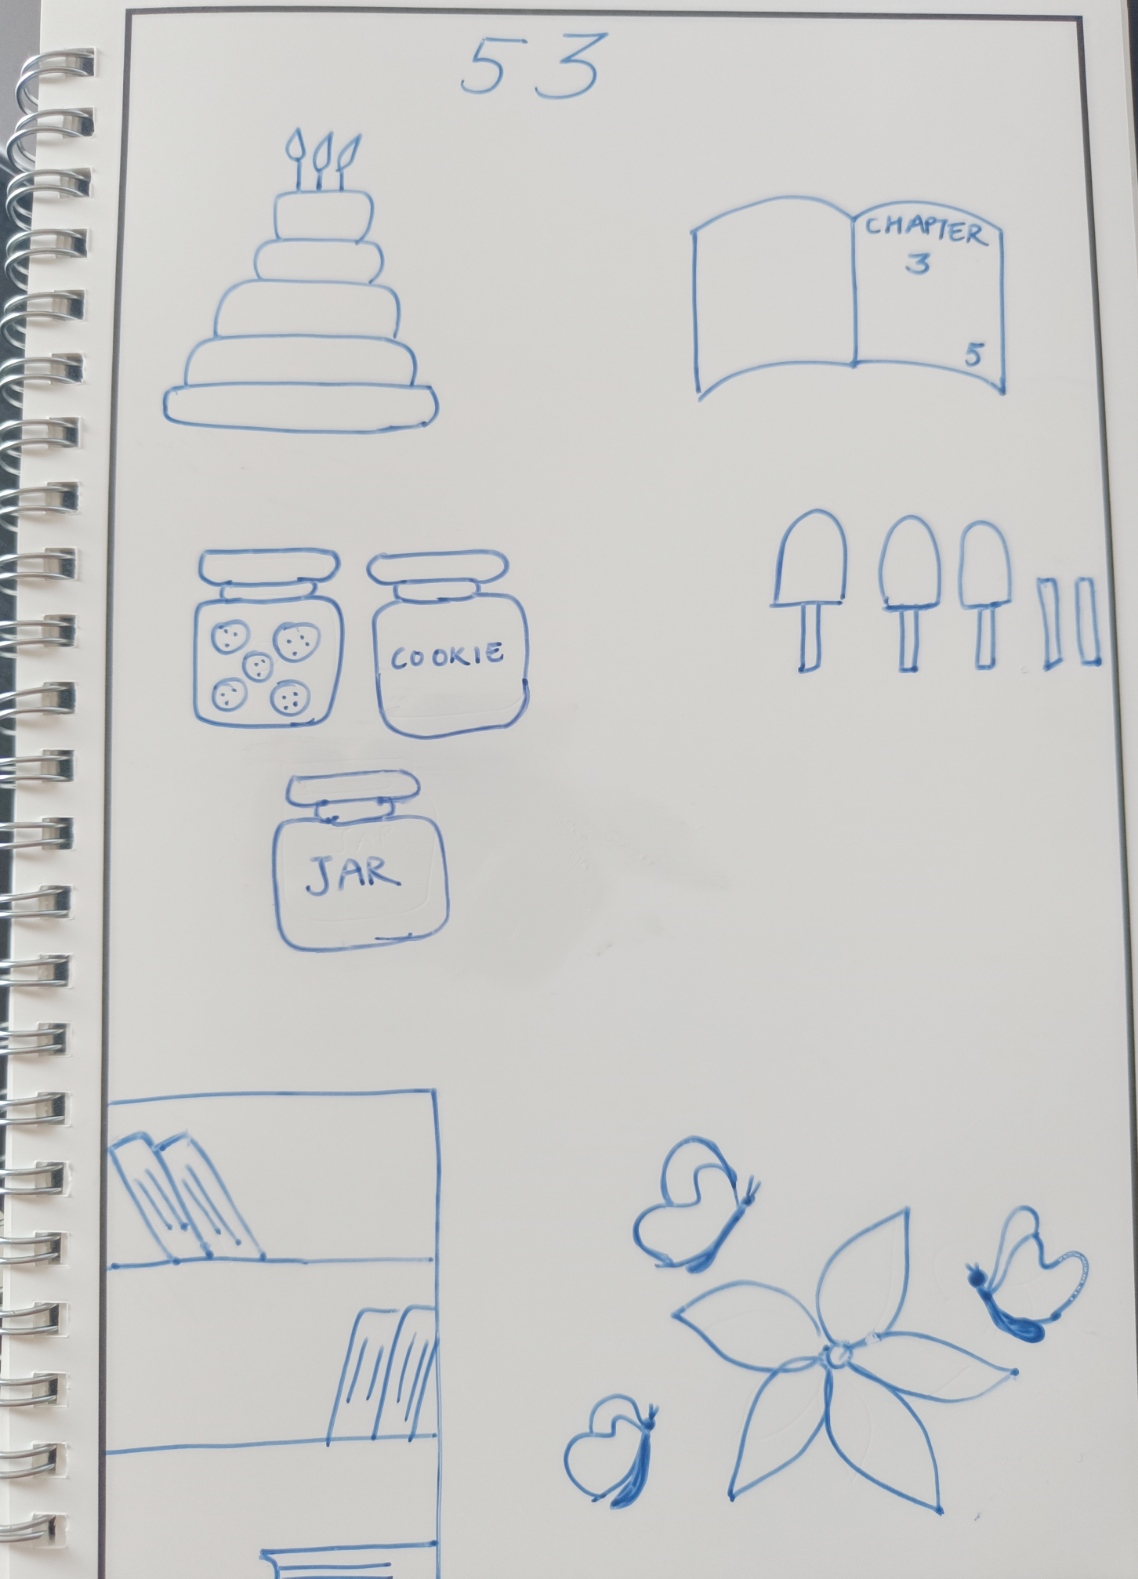 53
CHAPTER
3
5
COOKIE
JAR